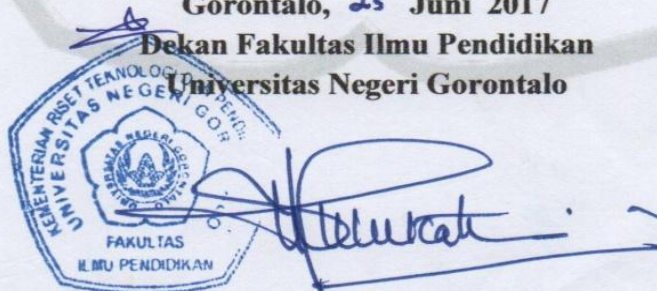 Gorontalo, 25 Juni 2017
Dekan Fakultas Ilmu Pendidikan
Universitas Negeri Gorontalo
KEMENTERIAN RISET TEKNOLOGI
UNIVERSITAS NEGERI GOR
UNIVERSITAS NEGERI GORONTALO
FAKULTAS
ILMU PENDIDIKAN